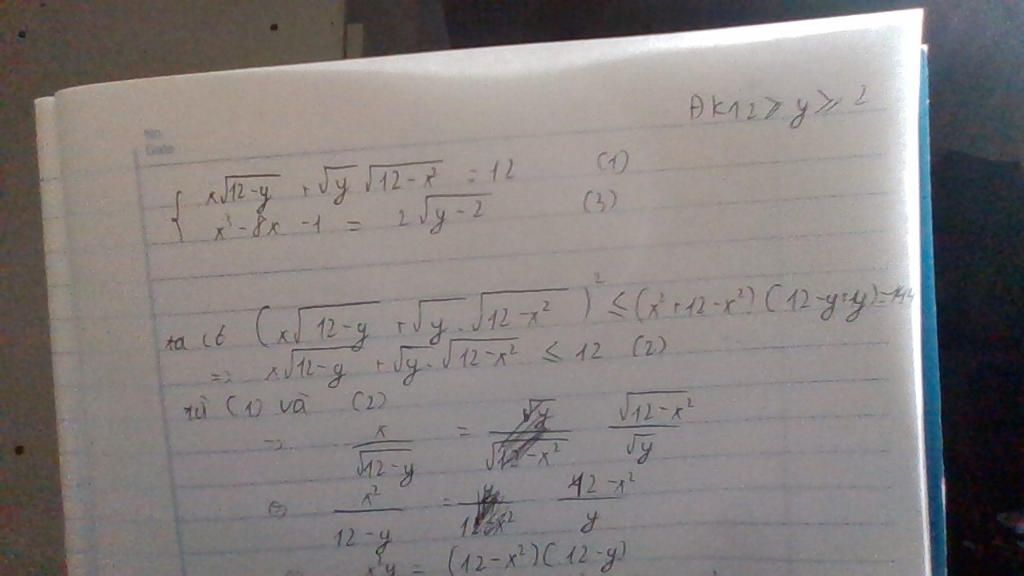 ĐK 12 ≥ y ≥ 2
x√(12-y) + √y √(12-x²) = 12 (1)
x³ - 8x - 1 = 2√(y-2) (3)
ta có (x√(12-y) + √y . √(12-x²))² ≤ (x² + 12 - x²)(12 - y + y) = 144
=> x√(12-y) + √y . √(12-x²) ≤ 12 (2)
từ (1) và (2)
=> x/√(12-y) = √(12-x²)/√y
⇔ x²/(12-y) = (12-x²)/y
x²y = (12-x²)(12-y)